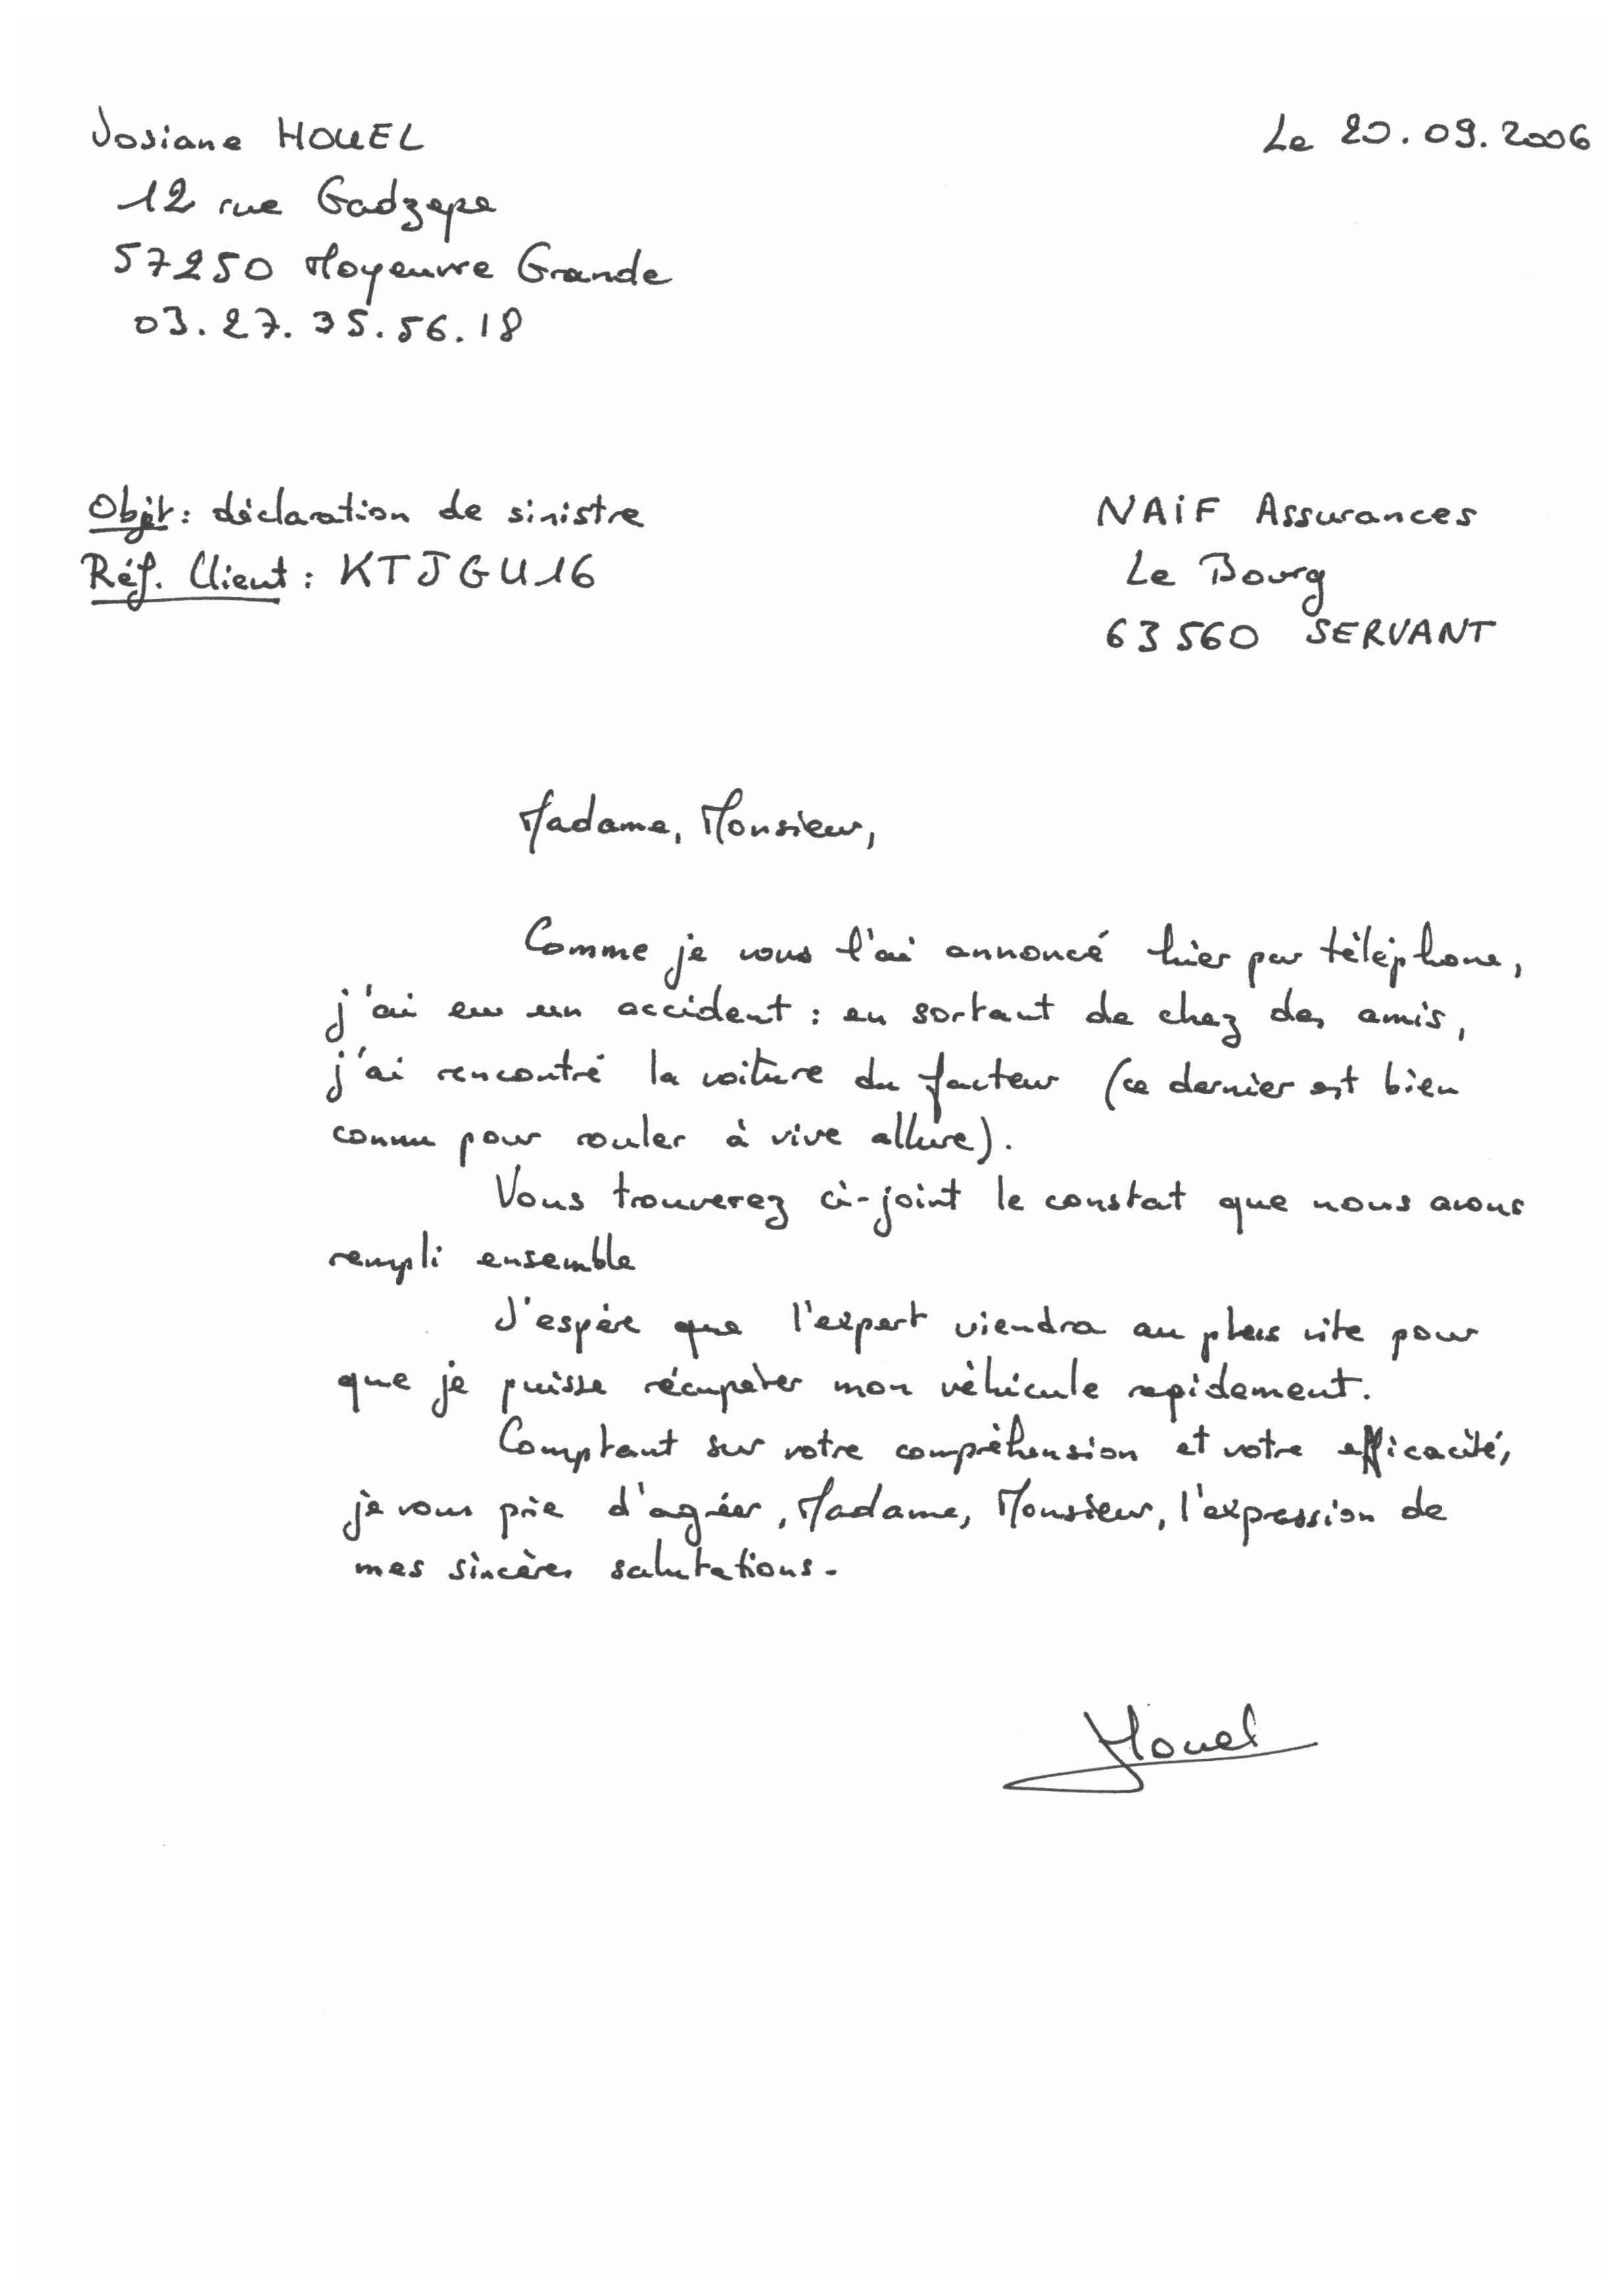 Josiane HOUEL
Le 20.09.2006
12 rue Gadzepe
57250 Moyeuvre Grande
03.27.35.56.18
Objet : déclaration de sinistre
Réf. Client : KTJGU16
NAiF Assurances
Le Bourg
63560 SERVANT
Madame, Monsieur,
Comme je vous l'ai annoncé hier par téléphone,
j'ai eu un accident : en sortant de chez des amis,
j'ai rencontré la voiture du facteur (ce dernier est bien
connu pour rouler à vive allure).
Vous trouverez ci-joint le constat que nous avons
rempli ensemble
J'espère que l'expert viendra au plus vite pour
que je puisse récupérer mon véhicule rapidement.
Comptant sur votre compréhension et votre efficacité,
je vous prie d'agréer, Madame, Monsieur, l'expression de
mes sincères salutations.
Houel